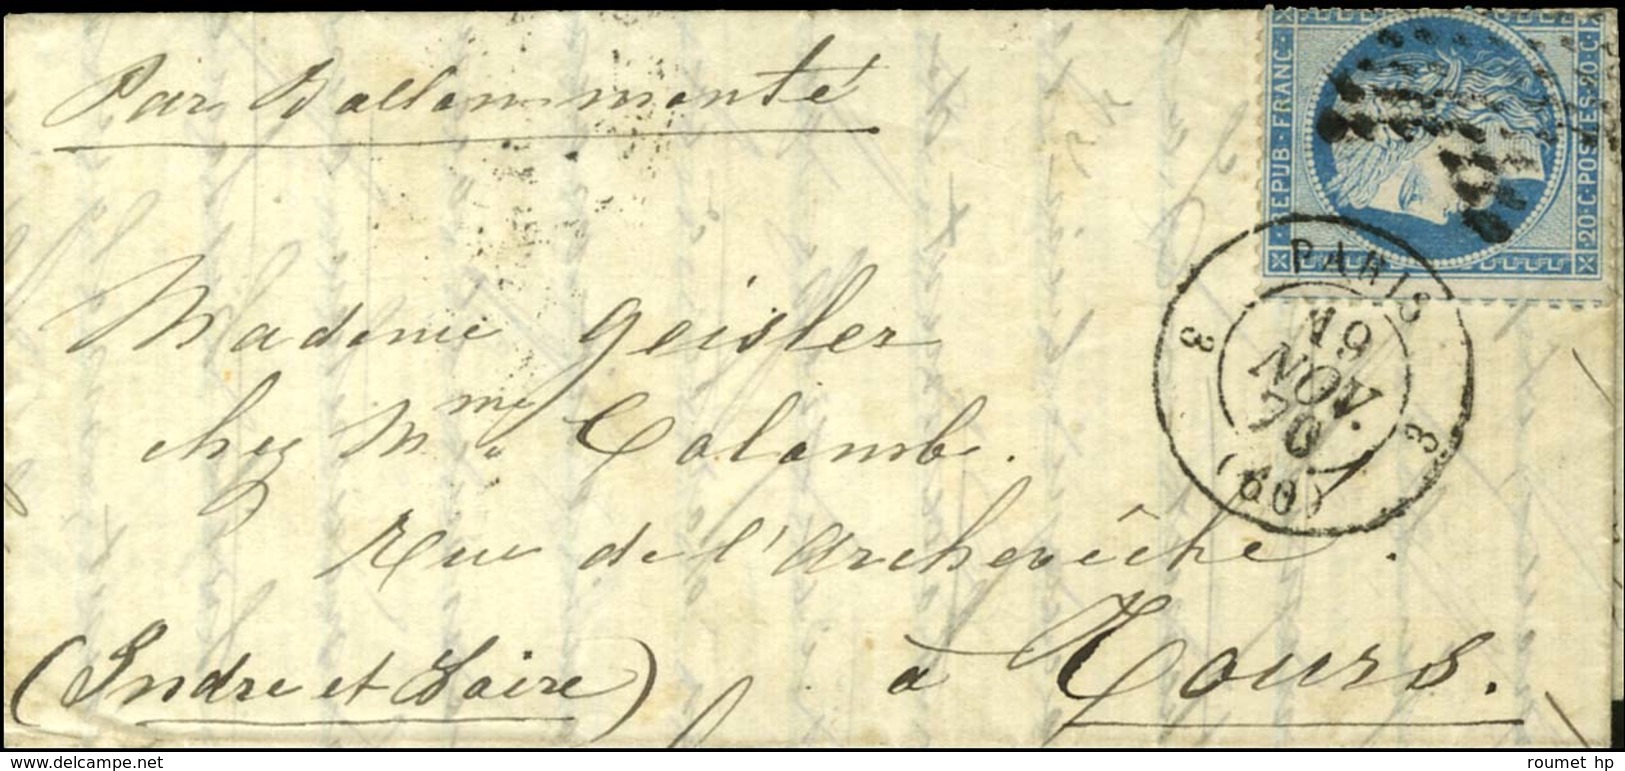 Par Ballon monté
REPUB · FRANC ·
20 · C · POSTES · 20 · C ·
PARIS
3 3
19
NOV.
70
(60)
Madame Geisler
chez Mme Colomb.
Rue de l'Archevêché.
(Indre et Loire) à Tours.
roumet hp